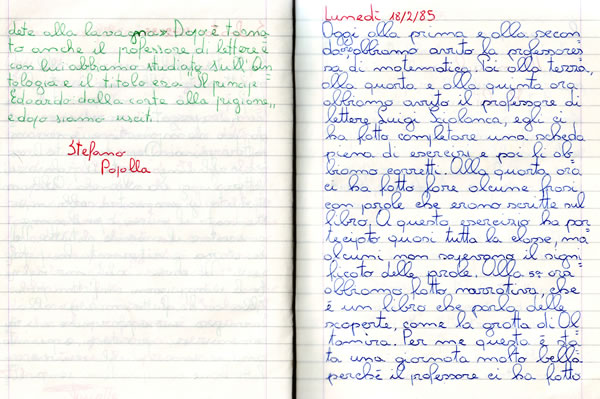 dete alla lavagna. Dopo è torna-
to anche il professore di lettere e
con lui abbiamo studiato sull'An-
tologia e il titolo era "Il principe
Edoardo dalla corte alla prigione"
e dopo siamo usciti.
Stefano
Popolla
Lunedì 18/2/85
Oggi alla prima e alla secon-
da, abbiamo avuto la professores-
sa di matematica. Poi alla terza,
alla quarta e alla quinta ora
abbiamo avuto il professore di
lettere Luigi Scialanca, egli ci
ha fatto completare una scheda
piena di esercizi e poi li ab-
biamo corretti. Alla quarta ora
ci ha fatto fare alcune frasi
con parole che erano scritte sul
libro. A questo esercizio ha par-
tecipato quasi tutta la classe, ma
alcuni non sapevano il signi-
ficato delle parole. Alla 5ª ora
abbiamo fatto narrativa, che
è un libro che parla delle
scoperte, come la grotta di Al-
tamira. Per me questa è sta-
ta una giornata molto bella
perché il professore ci ha fatto